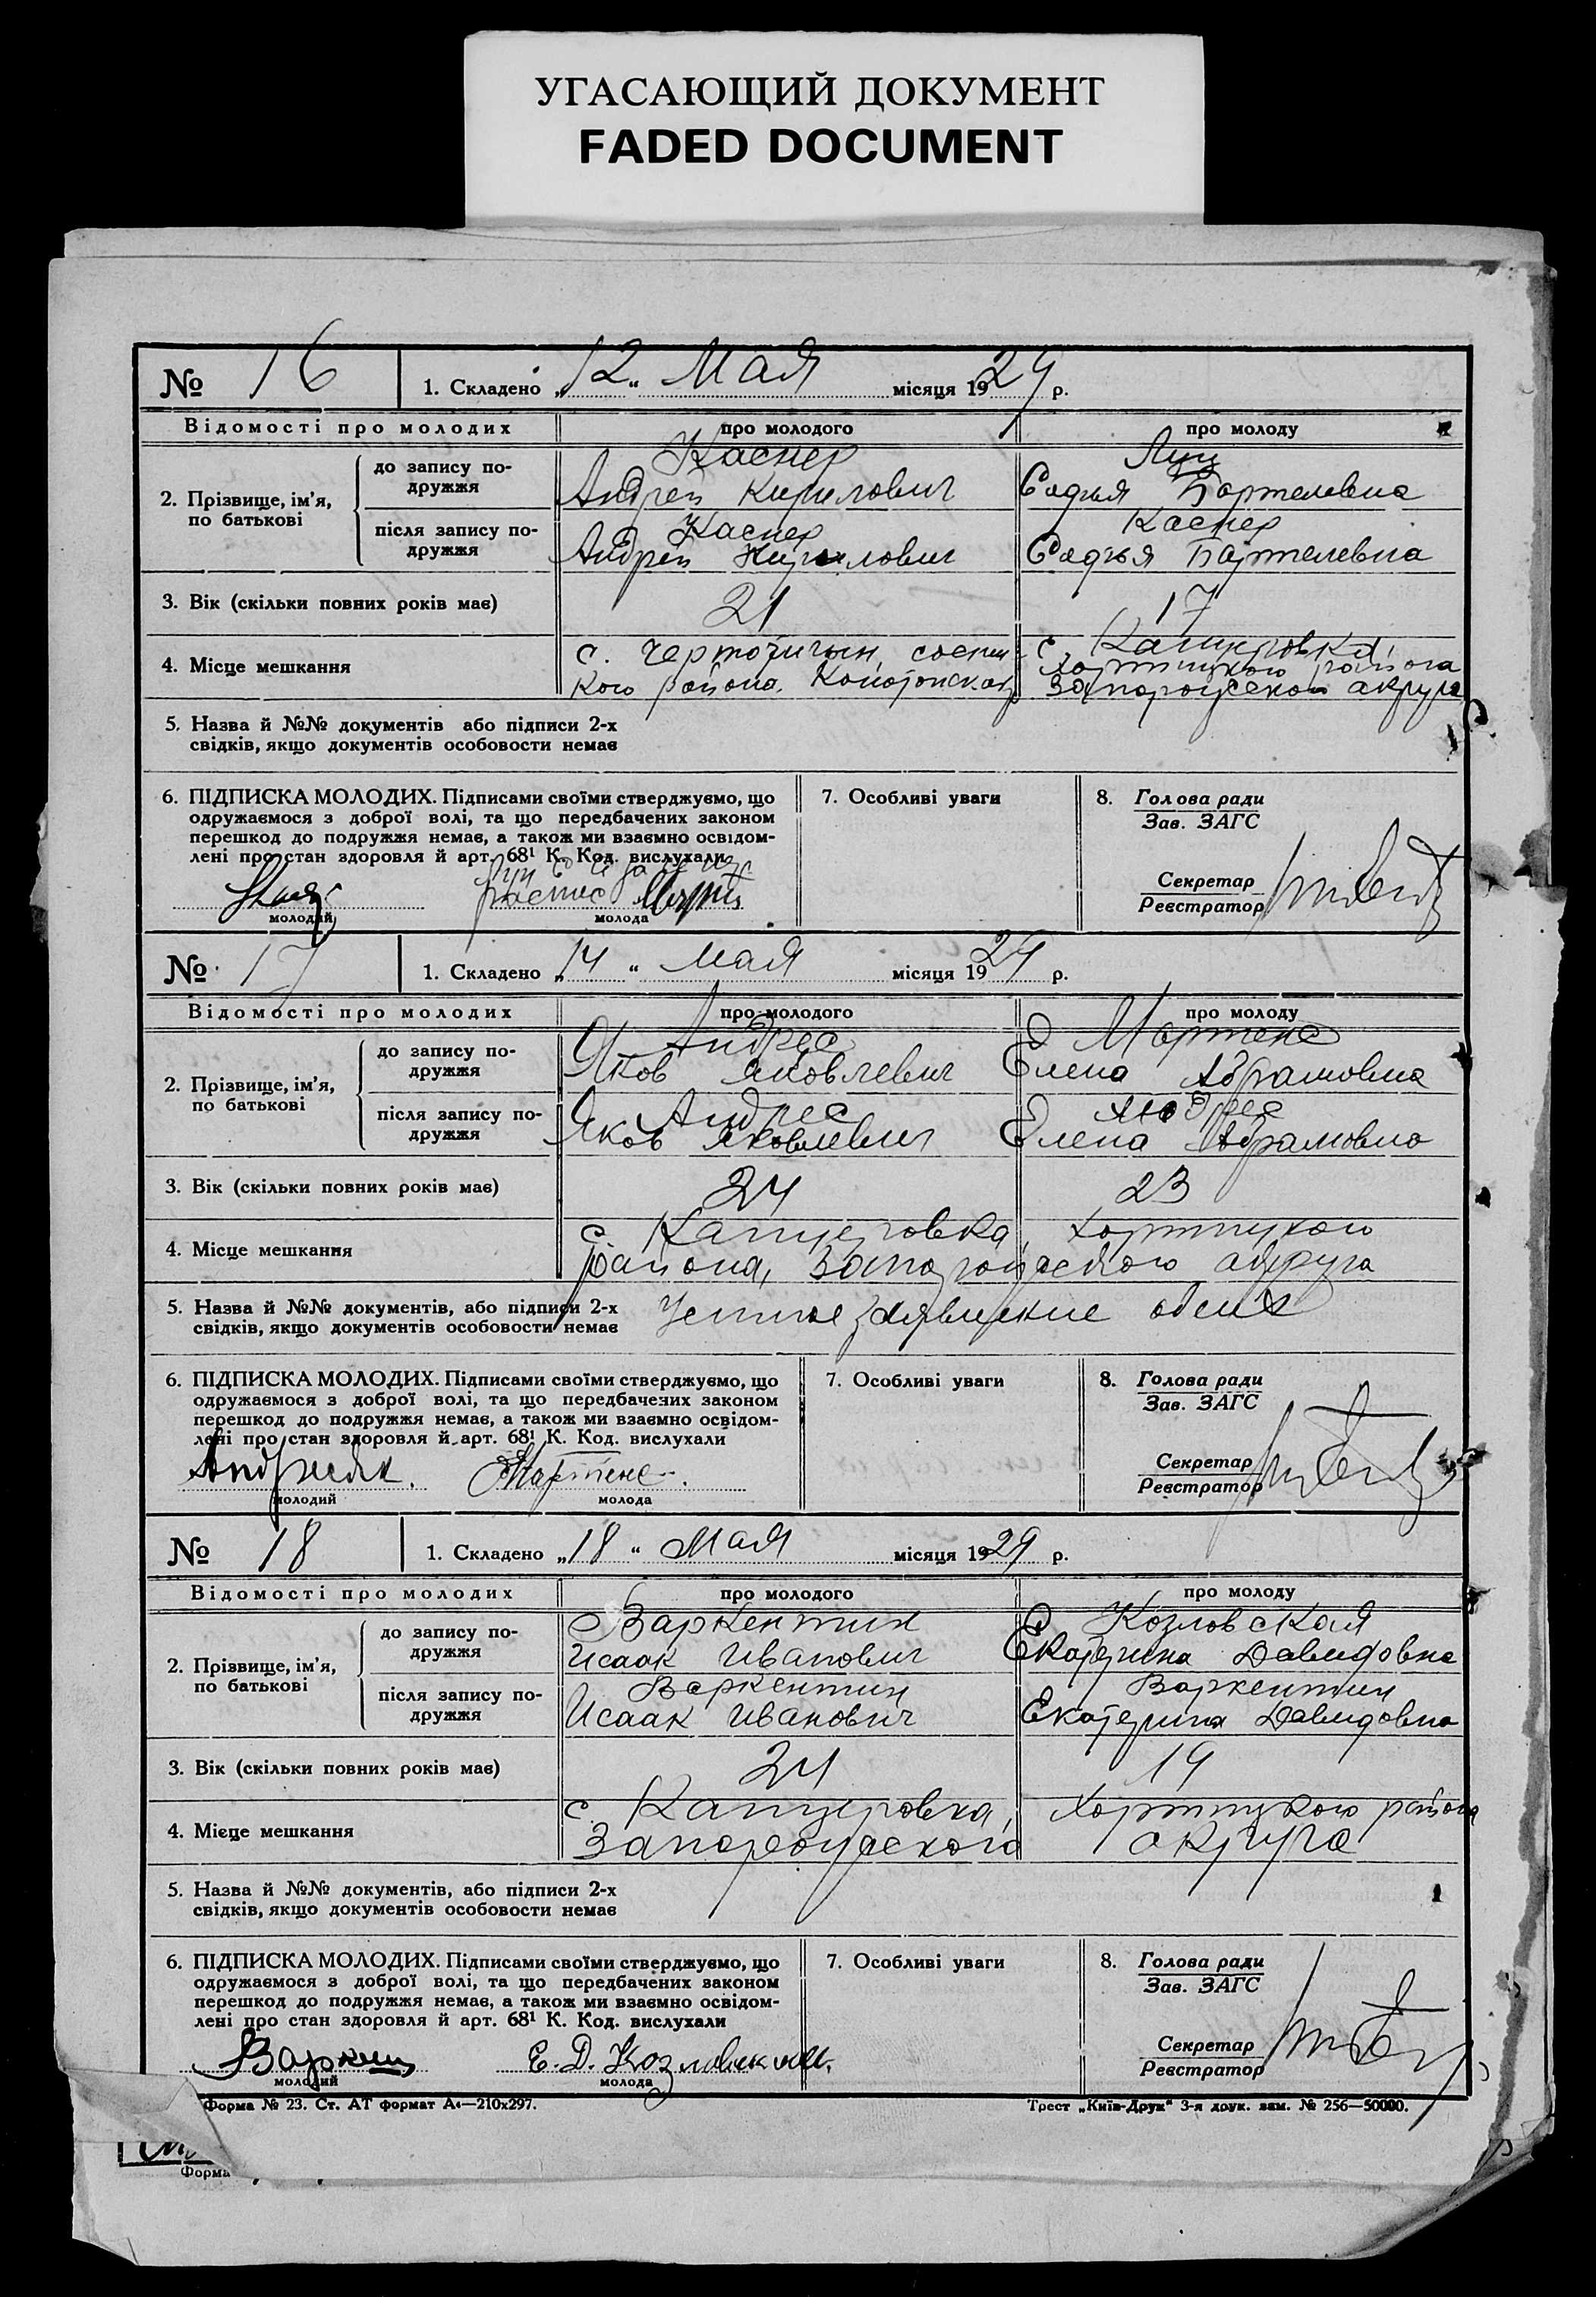 УГАСАЮЩИЙ ДОКУМЕНТ
FADED DOCUMENT
№ 16 1. Складено „12“ Мая місяця 1929 р.
Відомості про молодих про молодого про молоду
2. Прізвище, ім’я, по батькові
до запису подружжя
Каспер
Андрей Кирилович
Луц
Софья Бартелевна
після запису подружжя
Каспер
Андрей Кирилович
Каспер
Софья Бартелевна
3. Вік (скільки повних років має) 21 17
4. Місце мешкання
с.
кого района. Конотопск. окр
с. Канцеровка,
Хортицкого района
Запорожской округи
5. Назва й №№ документів або підписи 2-х
свідків, якщо документів особовости немає
6. ПІДПИСКА МОЛОДИХ. Підписами своїми стверджуємо, що
одружаємося з доброї волі, та що передбачених законом
перешкод до подружжя немає, а також ми взаємно освідом-
лені про стан здоровля й арт. 68¹ К. Код. вислухали
молодий молода
7. Особливі уваги
8. Голова ради
Зав. ЗАГС
Секретар
Реєстратор
№ 17 1. Складено „14“ мая місяця 1929 р.
Відомості про молодих про молодого про молоду
2. Прізвище, ім’я, по батькові
до запису подружжя
Андрес
Яков Яковлевич
Мартенс
Елена Абрамовна
після запису подружжя
Андрес
Яков Яковлевич
Андрес
Елена Абрамовна
3. Вік (скільки повних років має) 24 23
4. Місце мешкання
с. Канцеровка, Хортицкого
района, Запорожского округа
5. Назва й №№ документів, або підписи 2-х
свідків, якщо документів особовости немає
обеих
6. ПІДПИСКА МОЛОДИХ. Підписами своїми стверджуємо, що
одружаємося з доброї волі, та що передбачених законом
перешкод до подружжя немає, а також ми взаємно освідом-
лені про стан здоровля й арт. 68¹ К. Код. вислухали
Мартенс
молодий молода
7. Особливі уваги
8. Голова ради
Зав. ЗАГС
Секретар
Реєстратор
№ 18 1. Складено „18“ Мая місяця 1929 р.
Відомості про молодих про молодого про молоду
2. Прізвище, ім’я, по батькові
до запису подружжя
Варкентин
Исаак Иванович
Козловская
Екатерина Давидовна
після запису подружжя
Варкентин
Исаак Иванович
Варкентин
Екатерина Давидовна
3. Вік (скільки повних років має) 24 19
4. Місце мешкання
с. Канцеровка, Хортицкого района
Запорожского округа
5. Назва й №№ документів, або підписи 2-х
свідків, якщо документів особовости немає
6. ПІДПИСКА МОЛОДИХ. Підписами своїми стверджуємо, що
одружаємося з доброї волі, та що передбачених законом
перешкод до подружжя немає, а також ми взаємно освідом-
лені про стан здоровля й арт. 68¹ К. Код. вислухали
Е. Д.
молодий молода
7. Особливі уваги
8. Голова ради
Зав. ЗАГС
Секретар
Реєстратор
Форма № 23. Ст. АТ формат А₄—210х297.
Трест „Київ-Друк“ 3-я друк. зам. № 256—50000.
Форма